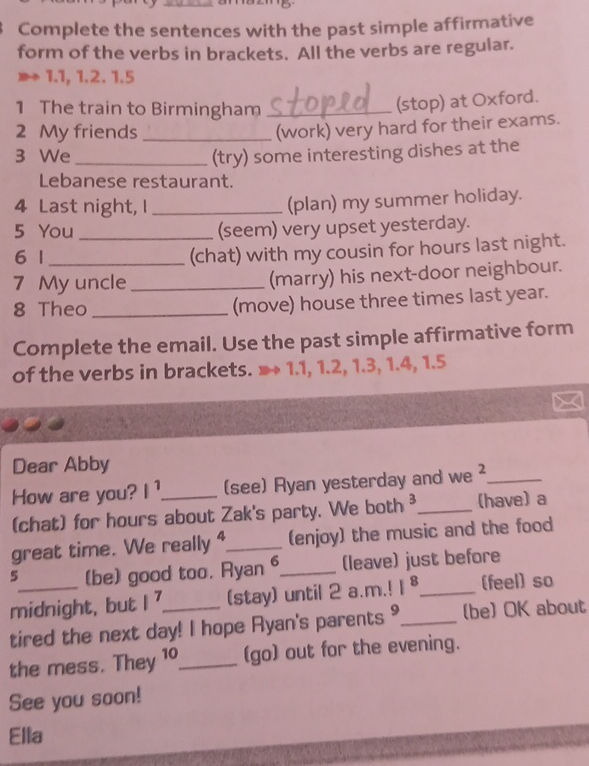 Complete the sentences with the past simple affirmative
form of the verbs in brackets. All the verbs are regular.
1.1, 1.2. 1.5
1 The train to Birmingham stoped (stop) at Oxford.
2 My friends ____________ (work) very hard for their exams.
3 We ____________ (try) some interesting dishes at the
Lebanese restaurant.
4 Last night, I ____________ (plan) my summer holiday.
5 You ____________ (seem) very upset yesterday.
6 I ____________ (chat) with my cousin for hours last night.
7 My uncle ____________ (marry) his next-door neighbour.
8 Theo ____________ (move) house three times last year.
Complete the email. Use the past simple affirmative form
of the verbs in brackets. 1.1, 1.2, 1.3, 1.4, 1.5
Dear Abby
How are you? I 1______ (see) Ryan yesterday and we 2______
(chat) for hours about Zak's party. We both 3______ (have) a
great time. We really 4______ (enjoy) the music and the food
5______ (be) good too. Ryan 6______ (leave) just before
midnight, but I 7______ (stay) until 2 a.m.! I 8______ (feel) so
tired the next day! I hope Ryan's parents 9______ (be) OK about
the mess. They 10______ (go) out for the evening.
See you soon!
Ella